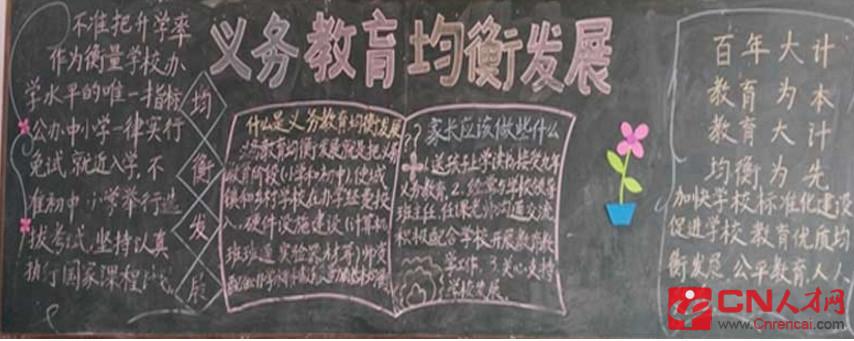 义务教育均衡发展
不准把升学率
作为衡量学校办
学水平的唯一指标
公办中小学一律实行
免试就近入学，不
准初中小学举行选
拔考试，坚持认真
执行国家课程
均
衡
发
展
什么是义务教育均衡发展
义务教育均衡发展就是把义务
教育阶段(小学和初中)使城
镇和乡村学校在办学经
硬件设施建设(计算机
班班通 实验器材等)师资
家长应该做些什么
1.送孩子上学读书接受九年
义务教育.2.经常与学校领导
班主任,任课老师沟通交流
积极配合学校开展教育教
学工作.3.关心支持
学校发展.
百年大计
教育为本
教育大计
均衡为先
加快学校标准化建设
促进学校教育优质均
衡发展 公平教育,人人
CN人才网
www.Cnrencai.com